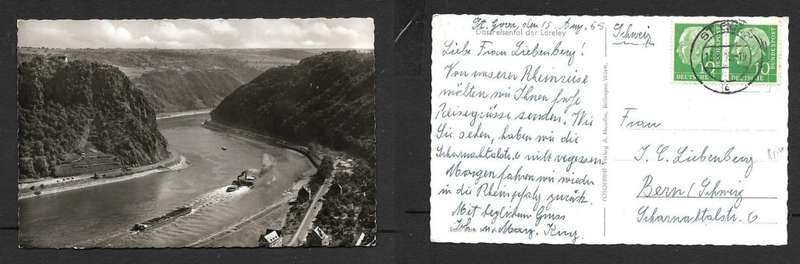 St. Goar, den 15. Aug. 55
Das Felsental der Loreley
Liebe Frau Liebenberg!
Von unserer Rheinreise
möchten wir Ihnen frohe
Reisegrüsse senden. Wie
Sie sehen, haben wir die
Scharnachtalstr. 6 nicht vergessen.
Morgen fahren wir wieder
in die Rheinpfalz zurück.
Mit herzlichem Gruss
(Schweiz)
DEUTSCHE BUNDESPOST
10
DEUTSCHE BUNDESPOST
10
Frau
J. C. Liebenberg
Bern/Schweiz
Scharnachtalstr. 6